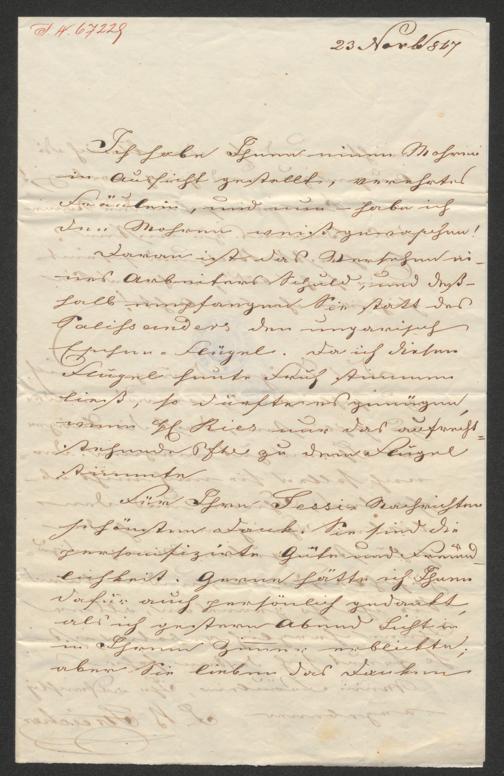 I. N. 67229
23 Novb 847
Ich habe Ihnen einen Mohren
in Aussicht gestellt, verehrtes
Fräulein, und nun habe ich
den Mohren weiß gewaschen!
Daran ist das Versehen ei-
nes Arbeiters Schuld, und deß-
halb empfangen Sie statt des
Palissanders den ungarisch
Eschen-Flügel. Da ich diesen
Flügel heute früh stimmen
ließ, so dürfte es genügen,
wenn H Ries nur das aufrecht-
stehende Pfte zu dem Flügel
stimmte.
Für Ihre Jessie Nachrichten
schönsten Dank. Sie sind die
personifizirte Güte und Freund-
lichkeit. Gerne hätte ich Ihnen
dafür auch persönlich gedankt,
als ich gestern Abend Licht
in Ihrem Zimmer erblickte;
aber Sie lieben das Danken